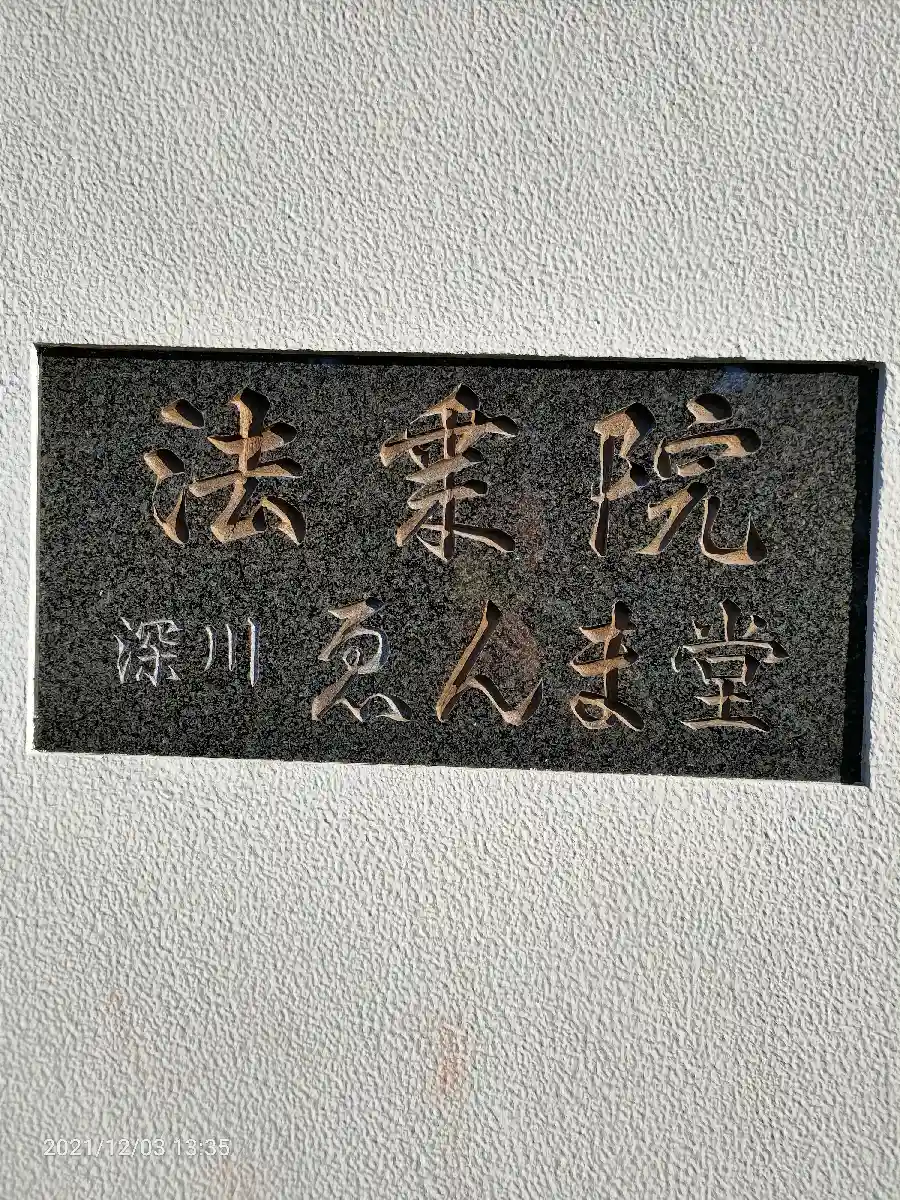 法乗院
深川ゑんま堂
2021/12/03 13:35